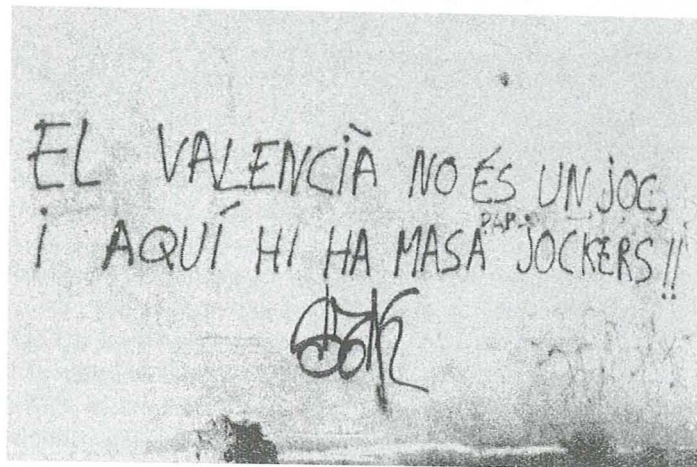 EL VALENCIÀ NO ÉS UN JOC,
i AQUÍ HI HA MASA JOCKERS!!